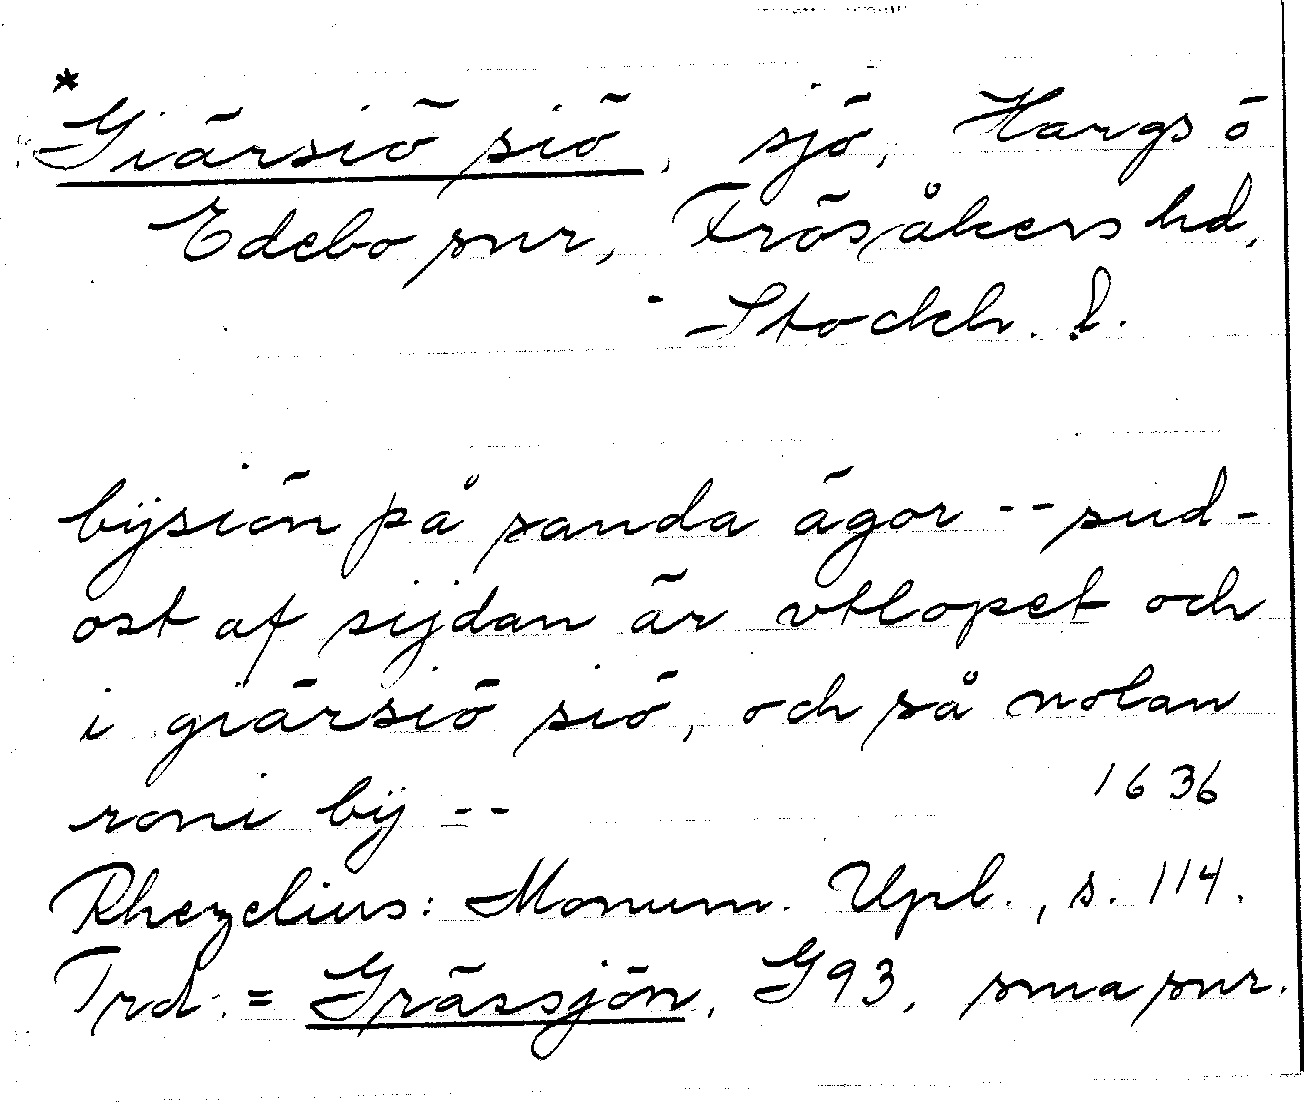 *
Giärsiö siö, sjö, Hargs o
Edebo snr, Frösåkers hd,
Stockh. l.
bÿsiön på sanda ägor -- sud-
ost af sijdan är vtlopet och
i giärsiö siö, och så nolan
roni bÿ --
1636
Rhezelius: Monum. Upl., s. 114.
Trd. = Grässjön, G93, sma snr.